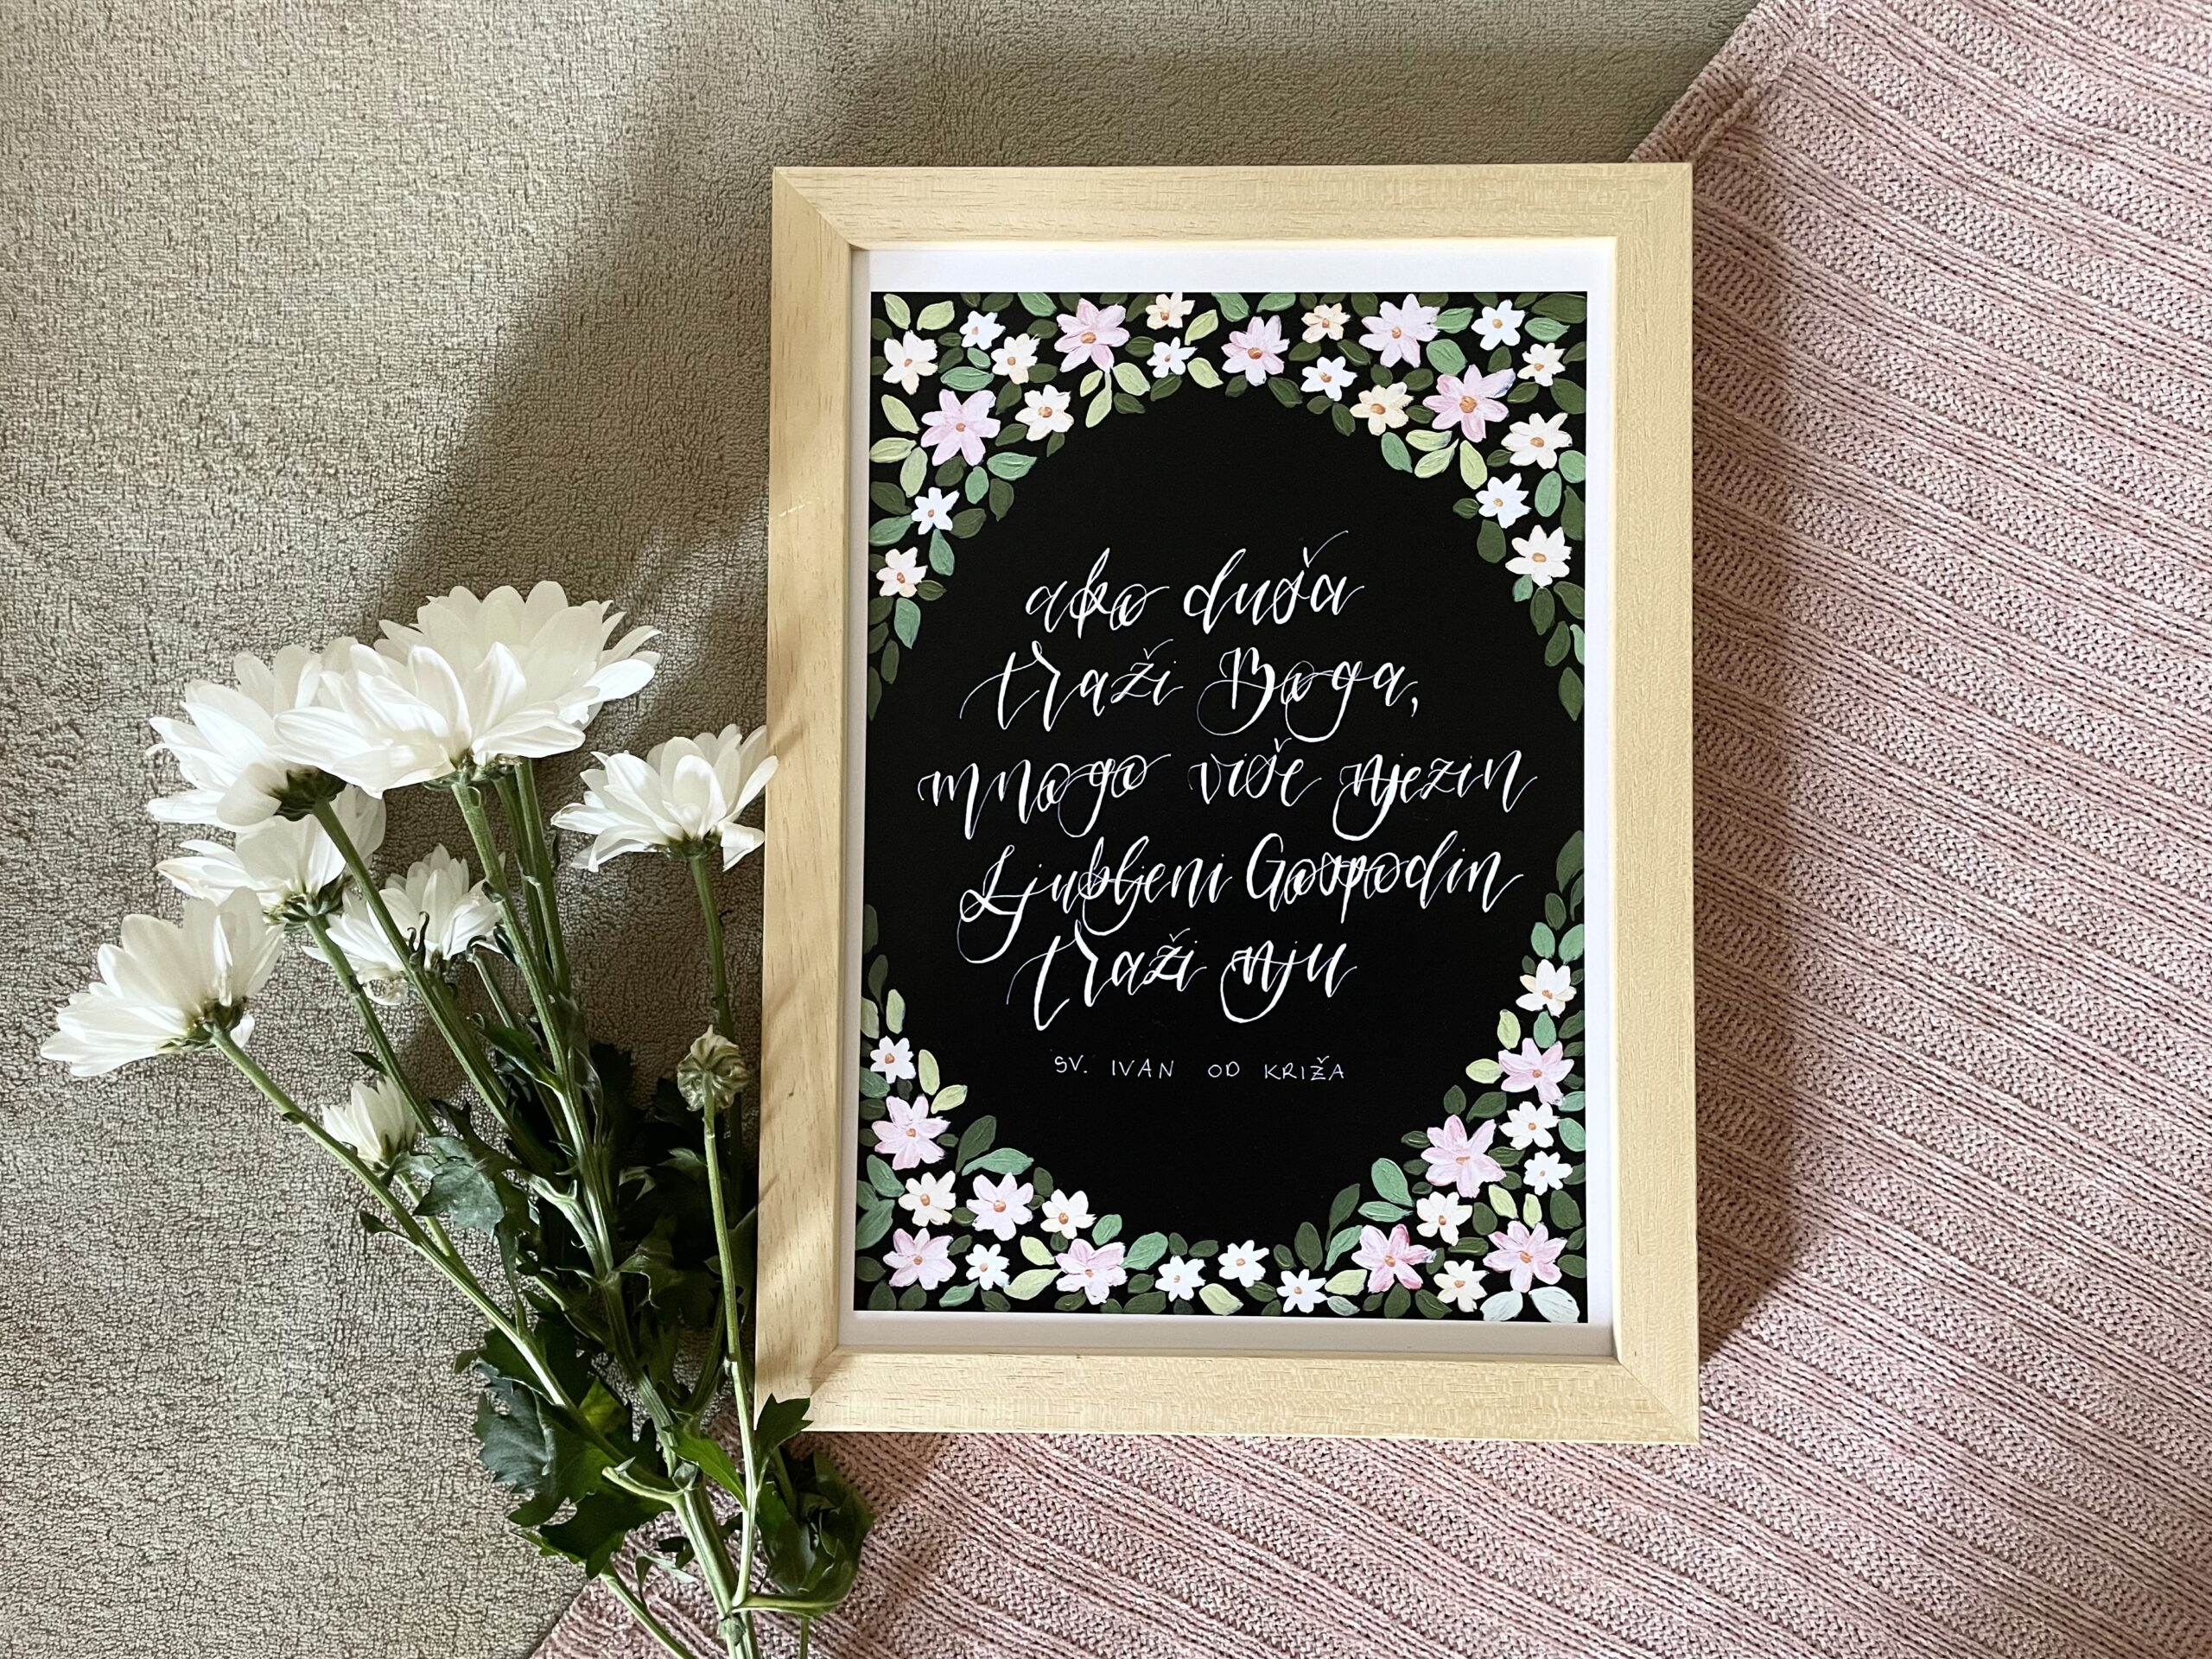 ako duša
traži Boga,
mnogo više njezin
Ljubljeni Gospodin
traži nju
SV. IVAN OD KRIŽA